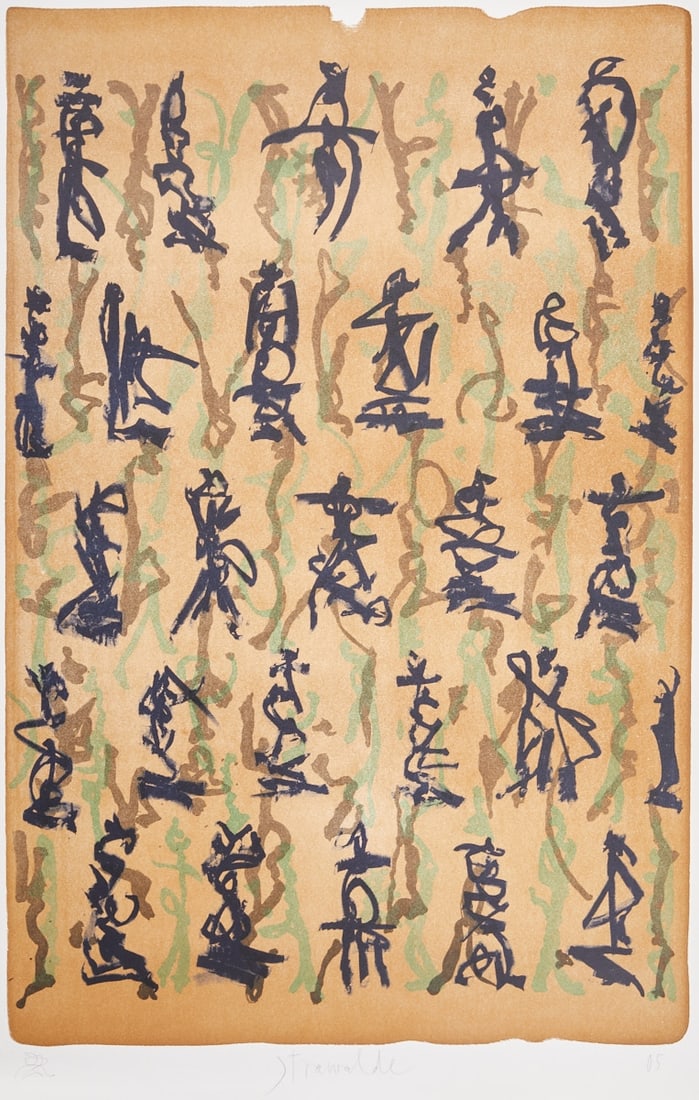 Strawalde 05